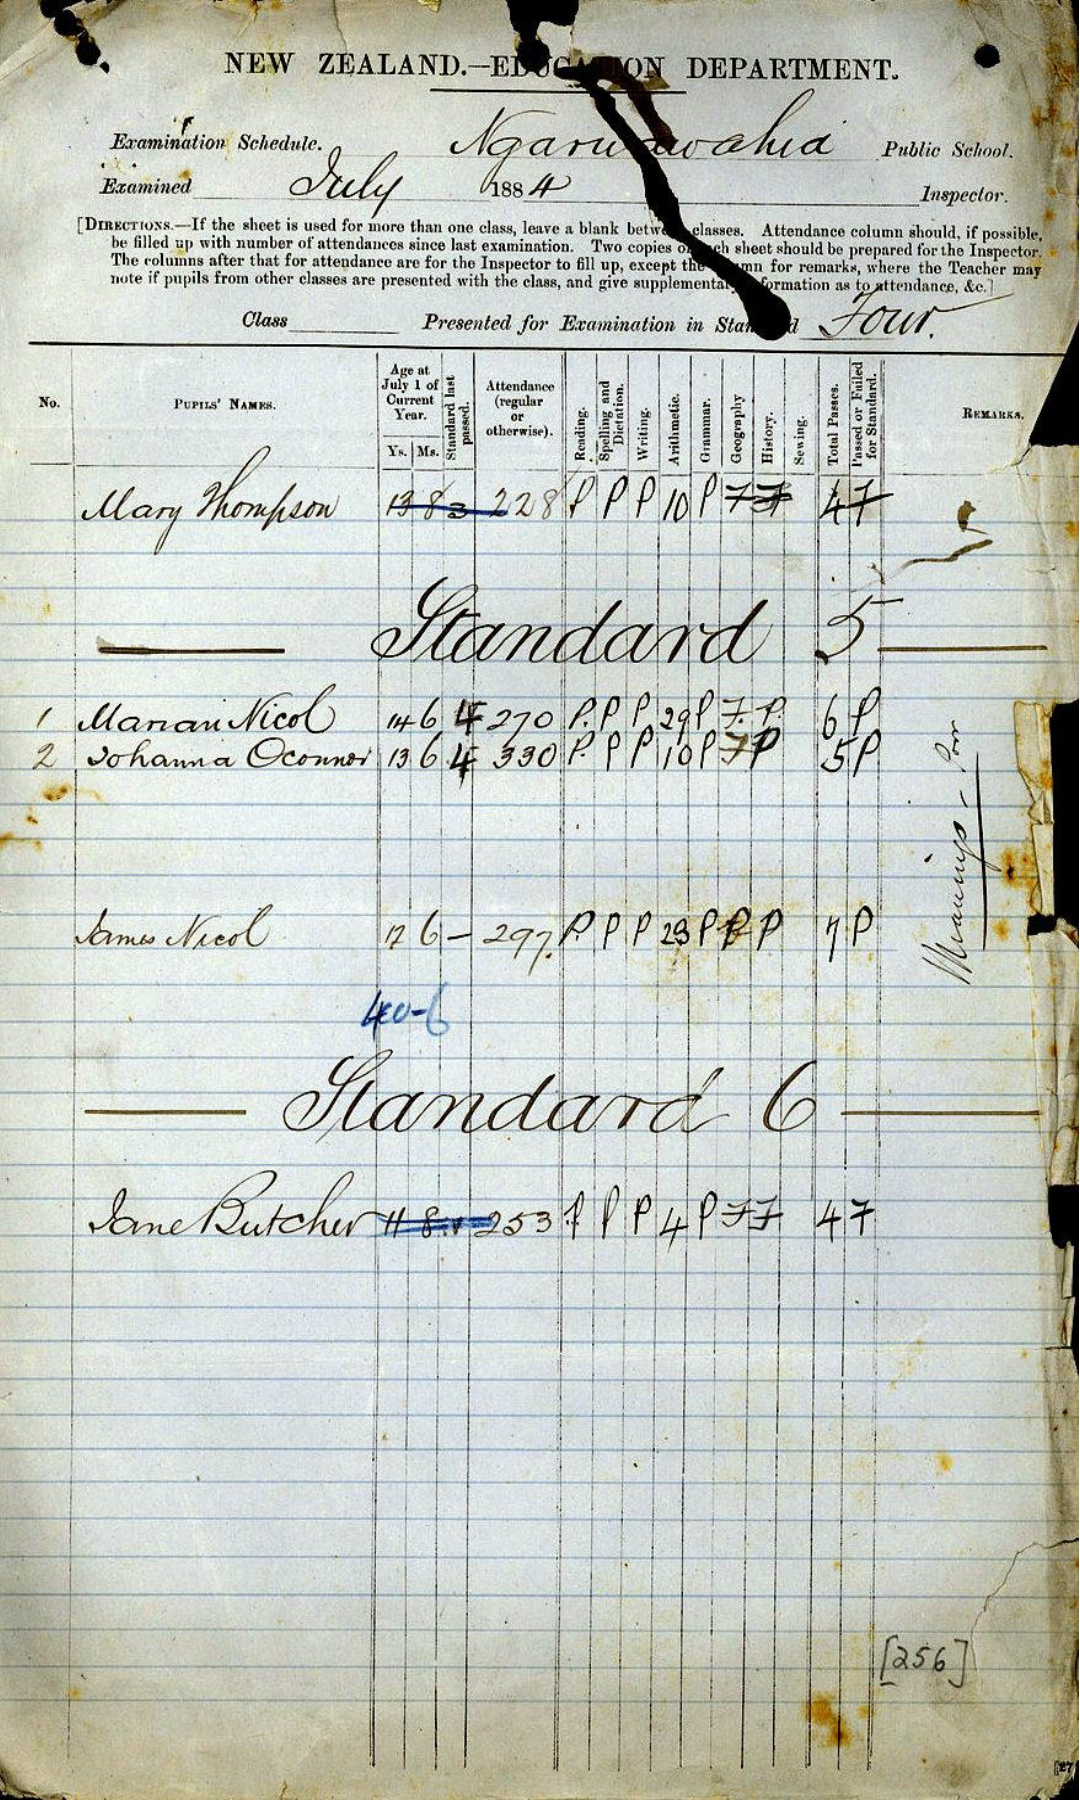 NEW ZEALAND.—EDUCATION DEPARTMENT.
Examination Schedule. Ngaruawahia Public School.
Examined July 1884 Inspector.
[DIRECTIONS.—If the sheet is used for more than one class, leave a blank between classes. Attendance column should, if possible,
be filled up with number of attendances since last examination. Two copies of each sheet should be prepared for the Inspector.
The columns after that for attendance are for the Inspector to fill up, except the column for remarks, where the Teacher may
note if pupils from other classes are presented with the class, and give supplementary information as to attendance, &c.]
Class Presented for Examination in Standard Four.
No. PUPILS' NAMES. Age at July 1 of Current Year. Ys. Ms. Standard last passed. Attendance (regular or otherwise). Reading. Spelling and Dictation. Writing. Arithmetic. Grammar. Geography History. Sewing. Total Passes. Passed or Failed for Standard. REMARKS.
Mary Thompson 13 8 3 228 P P P 10 P F F 4 F
Standard 5
1 Marian Nicol 14 6 4 270 P. P P 29 P F. P. 6 P
2 Johanna Oconnor 13 6 4 330 P. P P 10 P F P 5 P
Meanings - Poor
James Nicol 12 6 – 297. P. P P 23 P P P 7 P
40-6
Standard 6
Jane Butcher 11 8 253 P P P 4 P F F 4 F
[256]